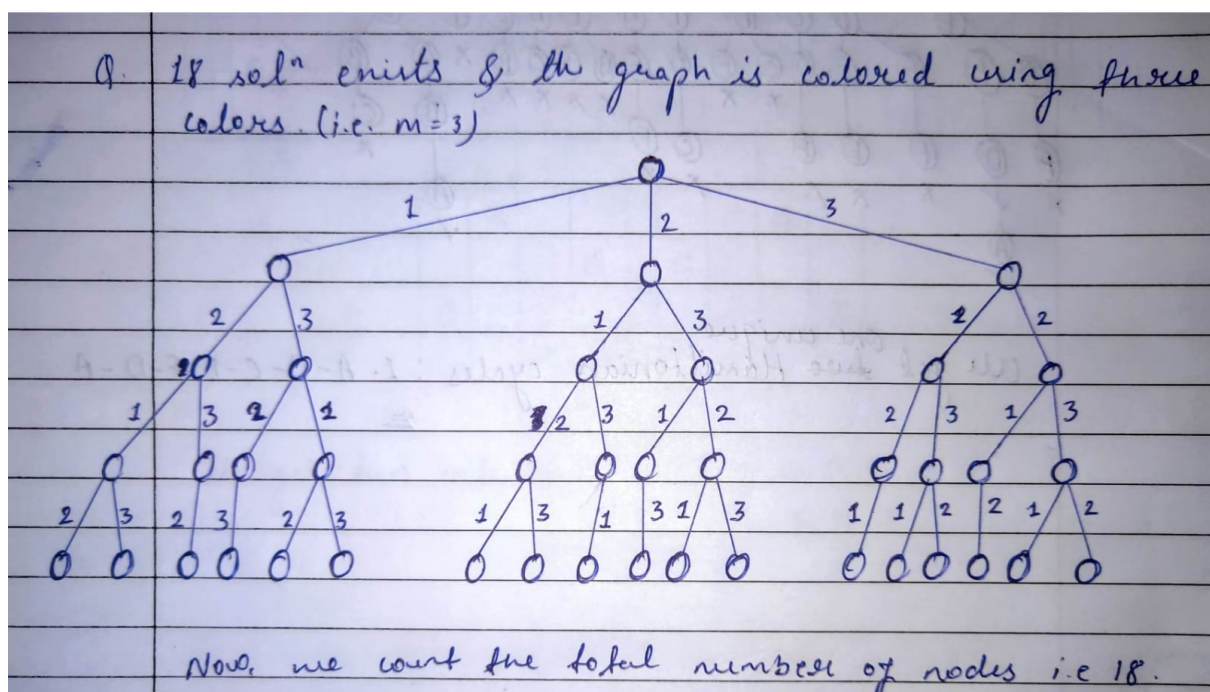 Q. 18 solⁿ exists & th graph is colored using three
colors. (i.e. m=3)
1 2 3
2 3 1 3 1 2
1 3 2 1 2 3 1 2 2 3 1 3
2 3 2 3 2 3 1 3 1 3 1 3 1 1 2 2 1 2
Now, we count the total number of nodes i.e 18.